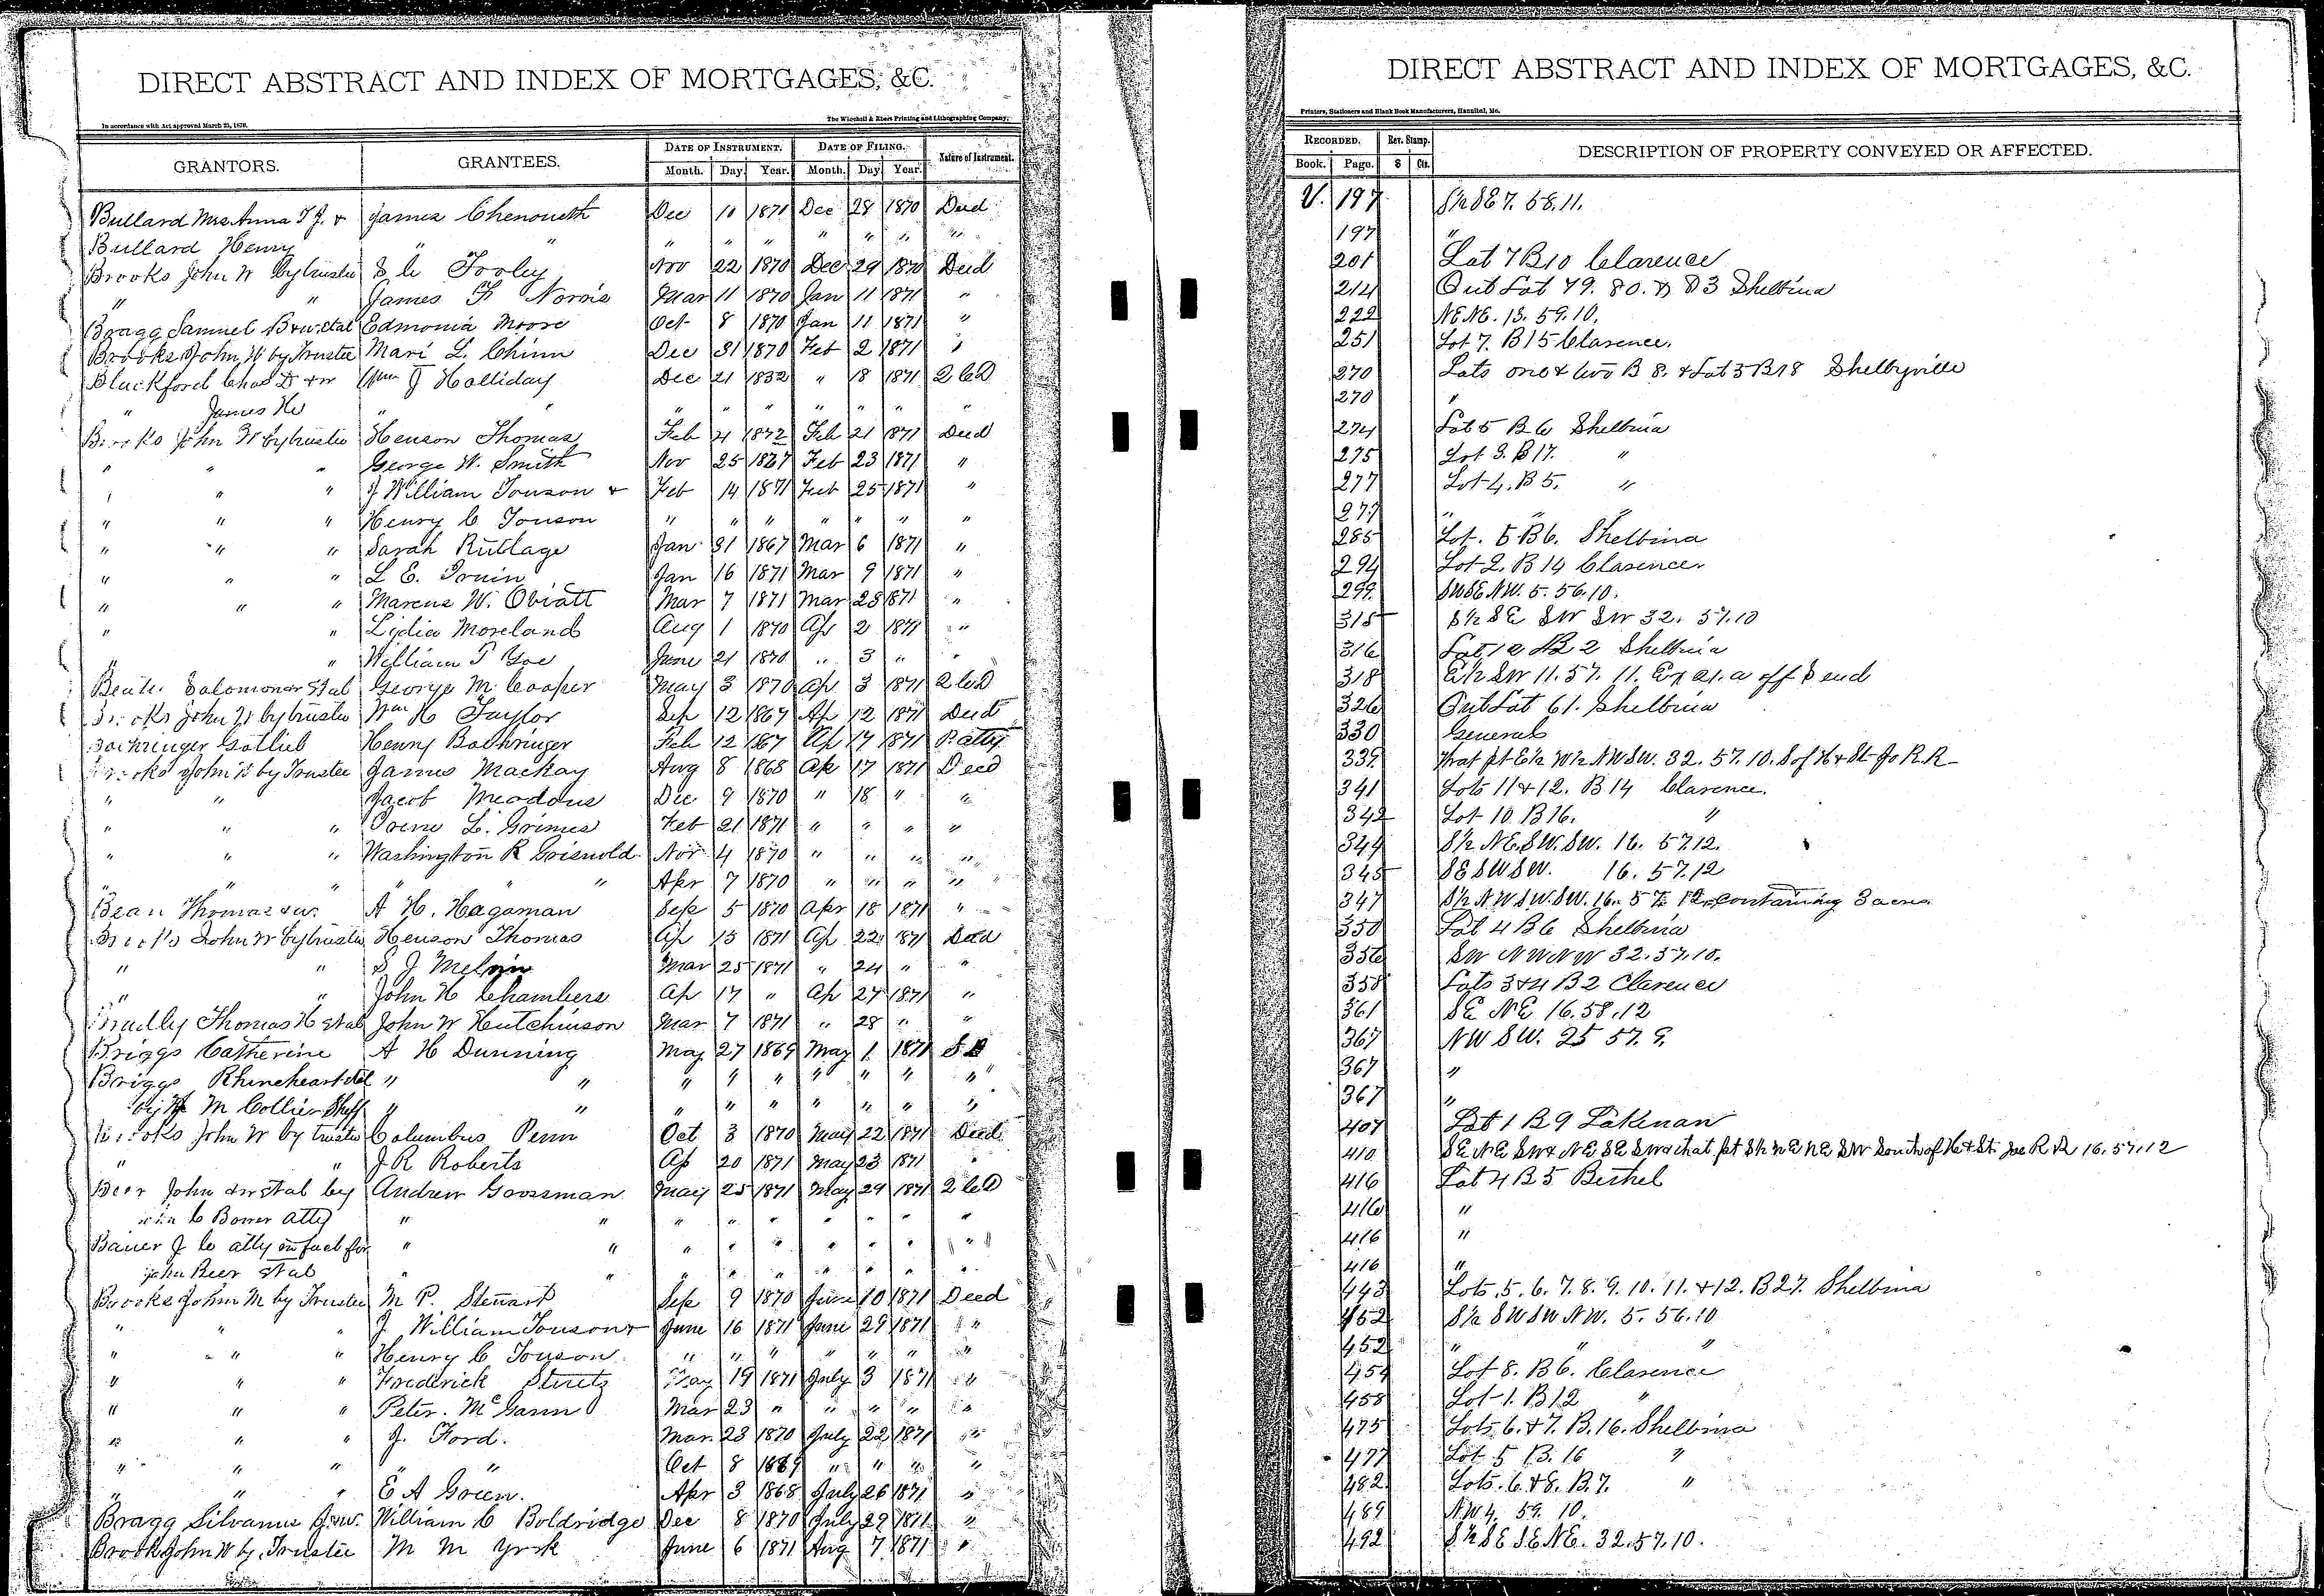 DIRECT ABSTRACT AND INDEX OF MORTGAGES, &C.
In accordance with Act approved March 25, 1870.
The Winchell & Ebert Printing and Lithographing Company,
GRANTORS. GRANTEES. DATE OF INSTRUMENT. DATE OF FILING. Nature of Instrument.
Month. Day Year. Month. Day Year.
Bullard Mrs Anna T J. & James Chenoueth Dec 10 1871 Dec 28 1870 Deed
Bullard Henry " " " " " " " " "
Brooks John W by trustee S C Tooley Nov 22 1870 Dec 29 1870 Deed
" " James F Norris Mar 11 1870 Jan 11 1871 "
Bragg Samuel B & w. et al Edmonia Moore Oct 8 1870 Jan 11 1871 "
Brooks John W by Trustee Mari L. Chinn Dec 31 1870 Feb 2 1871 "
Blackford Chas D & w Wm J Holliday Dec 21 1832 " 18 1871 2 C D
" James W " " " " " " " " "
Brooks John W by trustee Henson Thomas Feb 21 1872 Feb 21 1871 Deed
" " " George W. Smith Nov 25 1867 Feb 23 1871 "
" " " J William Touson & Feb 14 1871 Feb 25 1871 "
" " " Henry C Touson " " " " " " "
" " " Sarah Rutlage Jan 31 1867 Mar 6 1871 "
" " " L E. Irwin Jan 16 1871 Mar 9 1871 "
" " " Marcus W. Obiatt Mar 7 1871 Mar 28 1871 "
" " Lydia Moreland Aug 1 1870 Ap 2 1871 "
" " William T Yoe June 21 1870 " 3 " "
Solomon et al George M. Cooper May 3 1870 Ap 3 1871 2 C D
Brooks John W by trustee Wm H Taylor Sep 12 1869 Ap 12 1871 Deed
Boehringer Gotlieb Henry Boehringer Feb 12 1867 Ap 17 1871 P. atty
Brooks John W by Trustee James Mackay Aug 8 1868 Ap 17 1871 Deed
" " Jacob Meadows Dec 9 1870 " 18 " "
" " " Irene L. Grimes Feb 21 1871 " " " "
" " " Washington R Grisnold Nov 4 1870 " " " "
" " " " " " Apr 7 1870 " " " "
Bean Thomas & w. A H. Hagaman Sep 5 1870 Apr 18 1871 "
Brooks John W by trustee Henson Thomas Ap 15 1871 Ap 22 1871 Deed
" " S J Melvin Mar 25 1871 " 24 " "
" " John H Chambers Ap 17 " Ap 27 1871 "
Bradley Thomas H et al John W Hutchinson Mar 7 1871 " 28 " "
Briggs Catherine A H Dunning May 27 1869 May 1 1871 S D
Briggs Rhineheart et al " " " " " " " " "
by M Collier Shff " " " " " " " " "
Brooks John W by trustee Columbus Penn Oct 3 1870 May 22 1871 Deed
" " J. R Roberts Ap 20 1871 May 23 1871 "
Beer John & w et al by Andrew Goossman May 25 1871 May 29 1871 2 C D
C Bower atty " " " " " " " " "
Bauer J C atty in fact for " " " " " " " " "
John Beer et al " " " " " " " "
Brooks John M by Trustee M P. Stewart Sep 9 1870 June 10 1871 Deed
" " " J William Touson & June 16 1871 June 29 1871 " "
" " " Henry C Touson " " " " " " "
" " " Frederick Struts May 19 1871 July 3 1871 "
" " " Peter. McGann Mar 23 " " " " "
" " " J. Ford. Mar. 23 1870 July 22 1871 "
" " " " " Oct 8 1869 " " " "
" " " E A Green. Apr 3 1868 July 26 1871 "
Bragg Silvanus J & w. William C Boldridge Dec 8 1870 July 29 1871 "
Brooks John W by Trustee M M York June 6 1871 Aug 7 1871 "
DIRECT ABSTRACT AND INDEX OF MORTGAGES, &C.
Printers, Stationers and Blank Book Manufacturers, Hannibal, Mo.
RECORDED. Rev. Stamp. DESCRIPTION OF PROPERTY CONVEYED OR AFFECTED.
Book. Page. $ Cts.
V. 197 S½ SE 7. 58. 11.
197 "
201 Lot 7 B 10 Clarence
214 Out Lot 79. 80. & 83 Shelbina
222 NE NE. 13. 59. 10.
251 Lot 7. B 15 Clarence.
270 Lots one & two B 8. & Lot 3 B 18 Shelbyville
270 "
274 Lot 5 B 6 Shelbina
275 Lot 3. B 17. "
277 Lot 4. B 5. "
277 " " "
285 Lot. 5 B 6. Shelbina
294 Lot 2. B 14 Clarence.
299 SW SE NW. 5. 56. 10.
315 S½ SE SW SW 32. 57. 10
316 Lot 12 B 2 Shelbina
318 E½ SW 11. 57. 11. Ex 21. a off S end
326 Out Lot 61. Shelbina
330 General
339 That pt E½ W½ NW SW. 32. 57. 10. S of H & St Jo R. R
341 Lots 11 & 12. B. 14 Clarence.
342 Lot 10 B 16. "
344 S½ NE. SW. SW. 16. 57 12.
345 SE SW SW. 16. 57. 12
347 S½ NW SW. SW. 16. 57. 12. containing 3 acres
350 Lot 4 B 6 Shelbina
356 SW NW NW 32. 57. 10.
358 Lots 3 & 4 B 2 Clarence
361 SE NE 16. 58. 12
367 NW SW. 25 57. 9.
367 "
367 "
407 Lot 1 B 9 Lakenan
410 SE NE SW & NE SE SW & that pt S½ NE NE SW South of H & St. Joe R R. 16. 57. 12
416 Lot 4 B 5 Bethel
416 "
416 "
416 "
443 Lots. 5. 6. 7. 8. 9. 10. 11. & 12. B 27. Shelbina
452 S½ SW SW NW. 5. 56. 10
452 " " "
454 Lot 8. B 6. Clarence
458 Lot 1. B 12 "
475 Lots 6. & 7. B. 16. Shelbina
477 Lot 5 B. 16 "
482 Lots. 6. & 8. B. 7. "
489 NW 4. 59. 10.
492 S½ SE SE NE. 32. 57. 10.